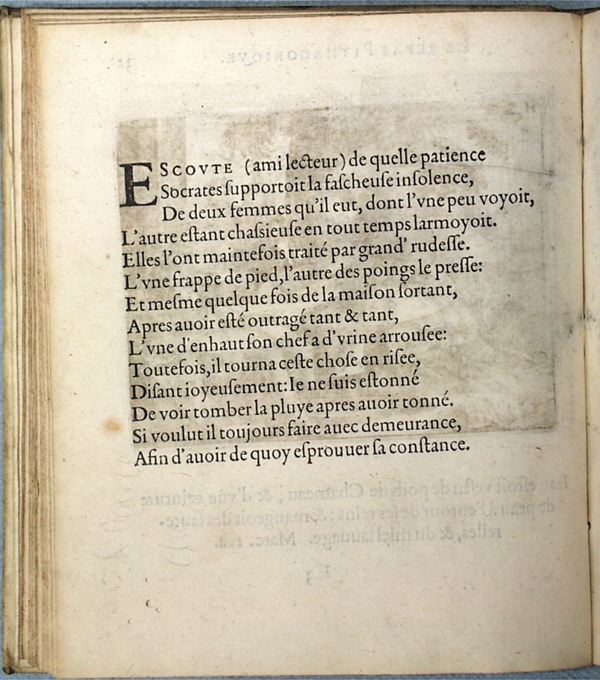 ESCOVTE (ami lecteur) de quelle patience
Socrates ſupportoit la faſcheuſe inſolence,
De deux femmes qu'il eut, dont l'vne peu voyoit,
L'autre eſtant chaſsieuſe en tout temps larmoyoit.
Elles l'ont maintefois traité par grand' rudeſſe.
L'vne frappe de pied, l'autre des poings le preſſe:
Et meſme quelque fois de la maiſon ſortant,
Apres auoir eſté outragé tant & tant,
L'vne d'enhaut ſon chef a d'vrine arrouſee:
Toutefois, il tourna ceſte choſe en riſee,
Diſant ioyeuſement: Ie ne ſuis eſtonné
De voir tomber la pluye apres auoir tonné.
Si voulut il toujours faire auec demeurance,
Afin d'auoir de quoy eſprouuer ſa conſtance.